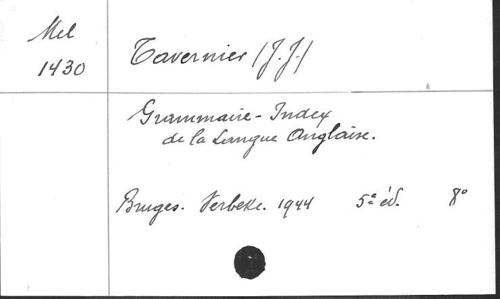 Mel
1430
Tavernier (J.J.)
Grammaire-Index
de la Langue Anglaise.
Bruges. Verbeke. 1944 5e éd. 8°